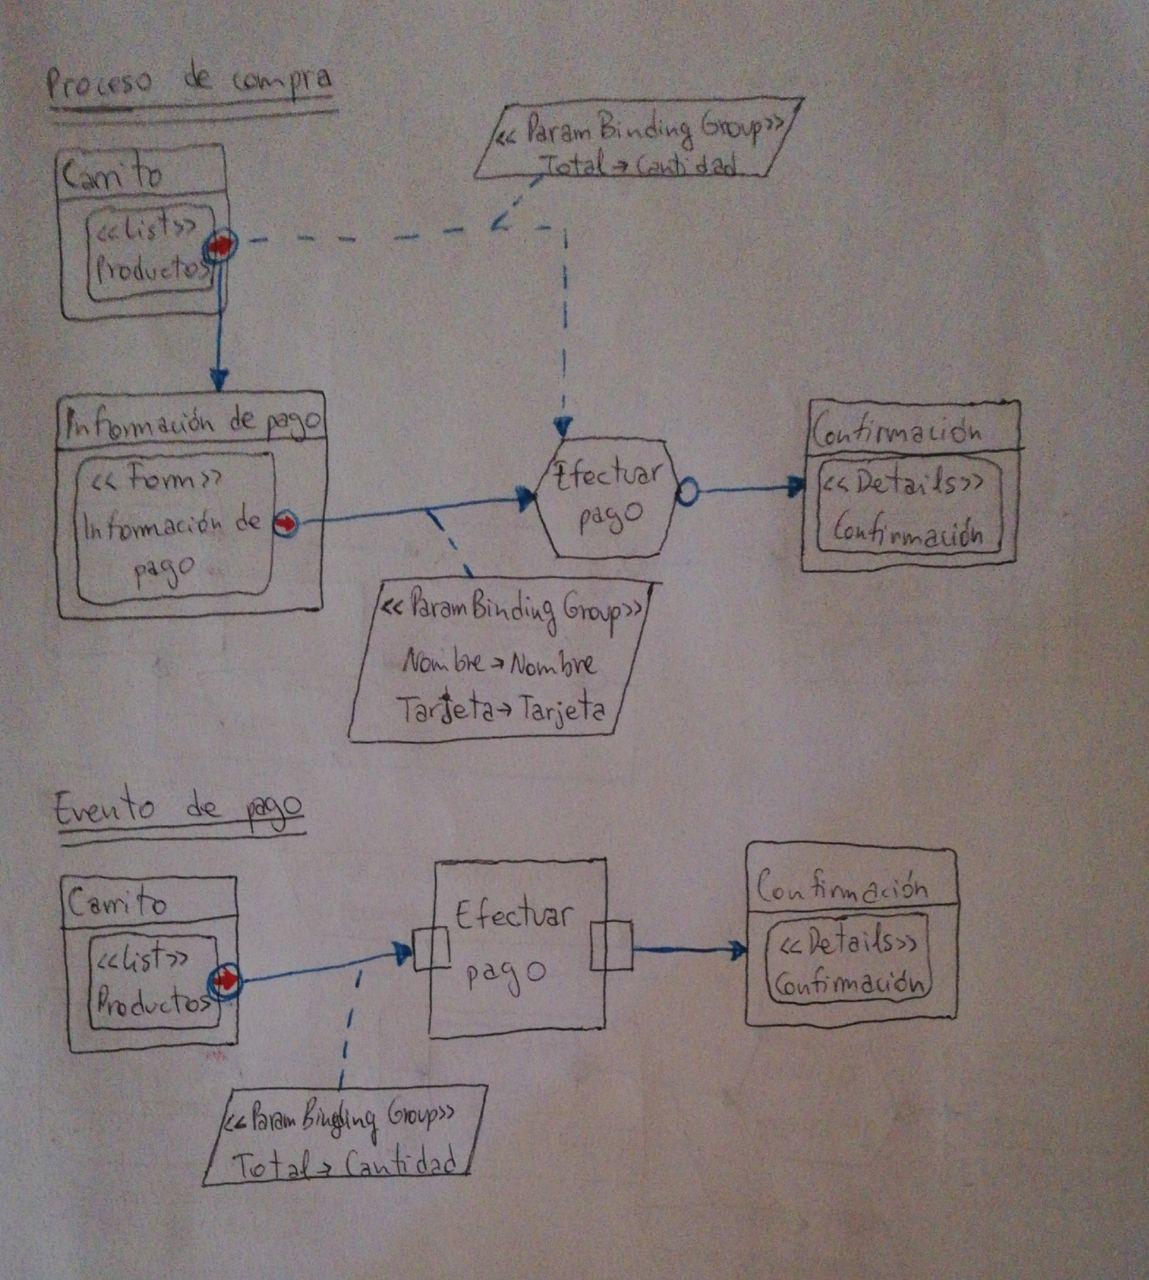 Proceso de compra
<<ParamBinding Group>>
Total → Cantidad
Carrito
<<List>>
Productos
Información de pago
<<Form>>
Información de
pago
Efectuar
pago
Confirmación
<<Details>>
Confirmación
<<ParamBinding Group>>
Nombre → Nombre
Tarjeta → Tarjeta
Evento de pago
Carrito
<<List>>
Productos
Efectuar
pago
Confirmación
<<Details>>
Confirmación
<<ParamBinding Group>>
Total → Cantidad